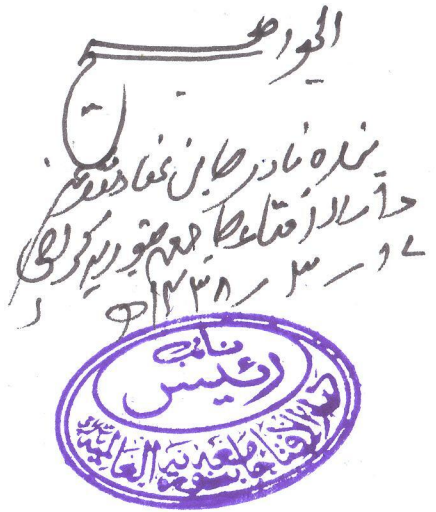 الجواب صحیح
بندہ نادر جان عفا عنہ
دارالافتاء جامعہ بنوریہ کراچی
۱۴۳۸ھ
نائب
رئیس
دار الافتاء جامعہ بنوریہ العالمیہ